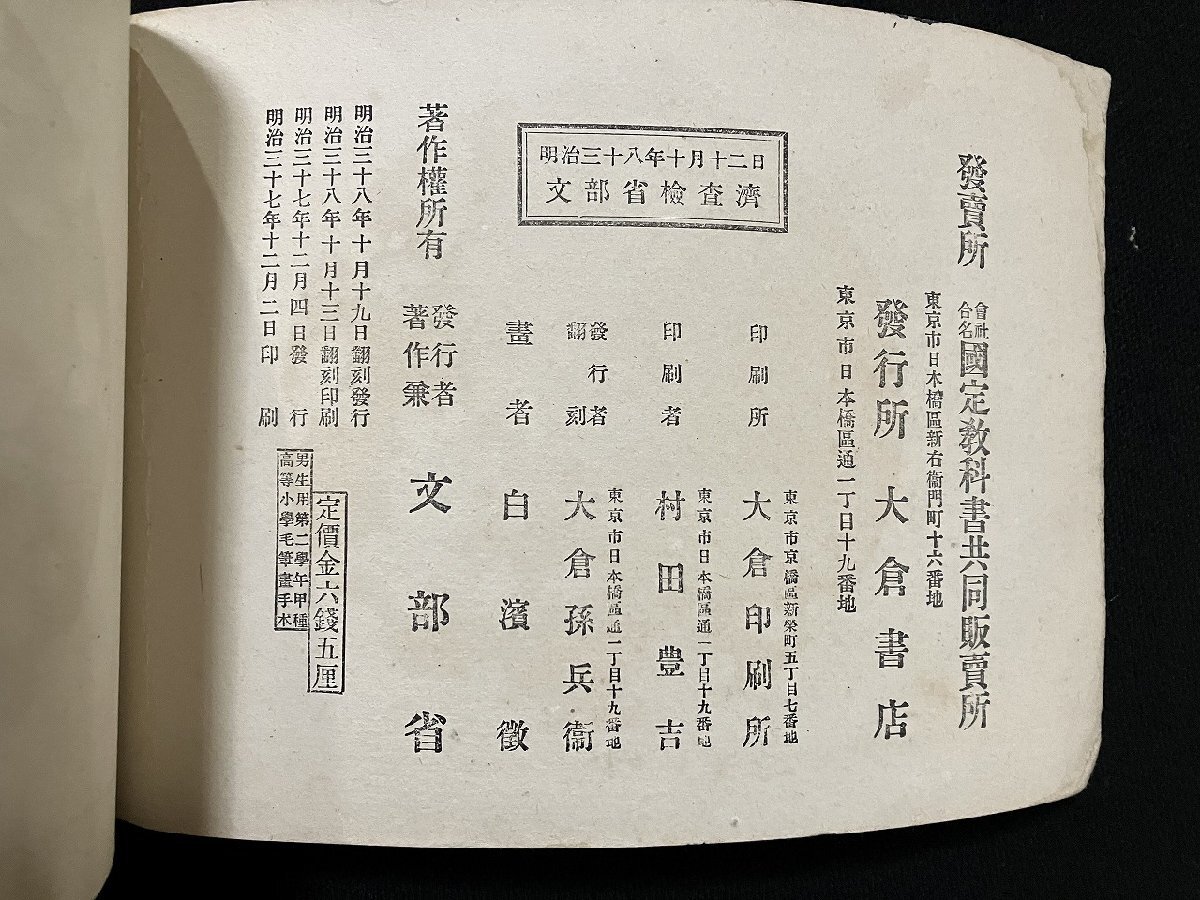 明治三十七年十二月二日印刷
明治三十七年十二月四日發行
明治三十八年十月十三日翻刻印刷
明治三十八年十月十九日翻刻發行
高等小學毛筆畫手本
男生用第二學年甲種
定價金六錢五厘
著作權所有
著作兼
發行者
文部省
明治三十八年十月十二日
文部省檢査濟
畫者 白濱徵
翻刻
發行者
大倉孫兵衞
東京市日本橋區通一丁目十九番地
印刷者 村田豊吉
東京市日本橋區通一丁目十九番地
印刷所 大倉印刷所
東京市京橋區新榮町五丁目七番地
東京市日本橋區通一丁目十九番地
發行所 大倉書店
東京市日本橋區新右衞門町十六番地
發賣所
合名
會社
國定教科書共同販賣所